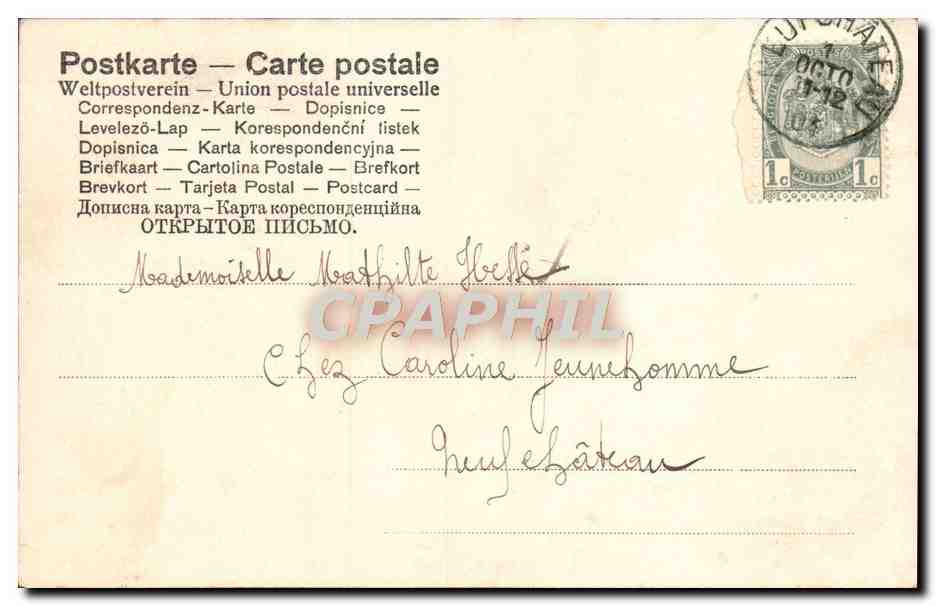 Postkarte — Carte postale
Weltpostverein — Union postale universelle
Correspondenz-Karte — Dopisnice —
Levelező-Lap — Korespondenční lístek
Dopisnica — Karta korespondencyjna —
Briefkaart — Cartolina Postale — Brefkort
Brevkort — Tarjeta Postal — Postcard —
Дописна карта — Карта кореспонденцiйна
ОТКРЫТОЕ ПИСЬМО.
NEUFCHÂTEAU
1
OCTO
11-12
POSTERIJEN
1c 1c
Mademoiselle Mathilte
CPAPHIL
Chez Caroline Jeunehomme
Neufchâteau